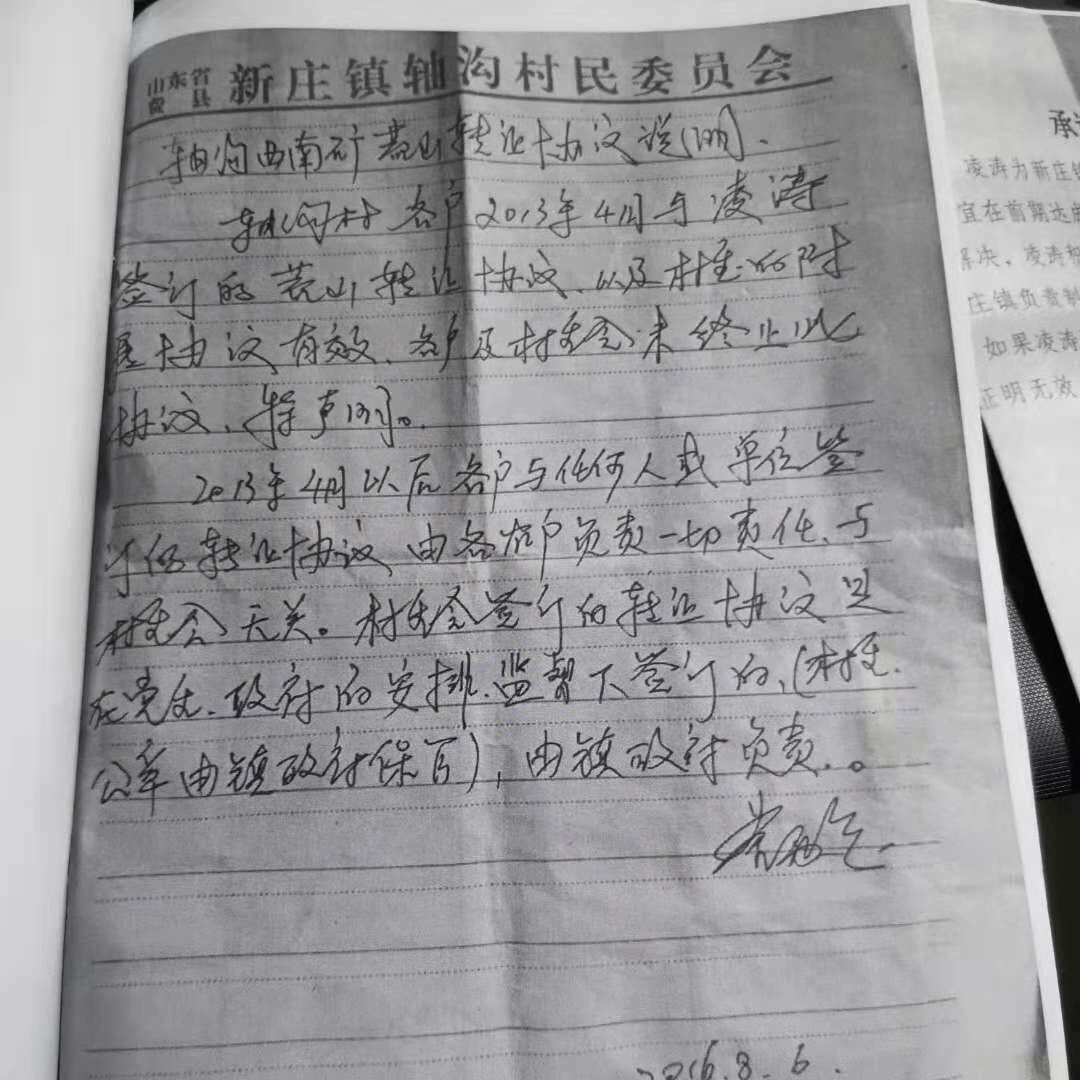 山东省费县 新庄镇轴沟村民委员会
轴沟西南矿荒山转让协议说明.
轴沟村各户2013年4月与凌涛
签订的荒山转让协议、以及村委的附
属协议有效、各户及村委会未终止此
协议、特声明。
2013年4月以后各户与任何人或单位签
订的转让协议由各农户负责一切责任、与
村委会无关。村委会签订的转让协议是
在党委、政府的安排、监督下签订的,(村委.
公章由镇政府保管),由镇政府负责.。
2016.8.6.
承
凌涛为新庄镇
宜在前期达成
解决,凌涛
庄镇负责
如果凌涛
证明无效